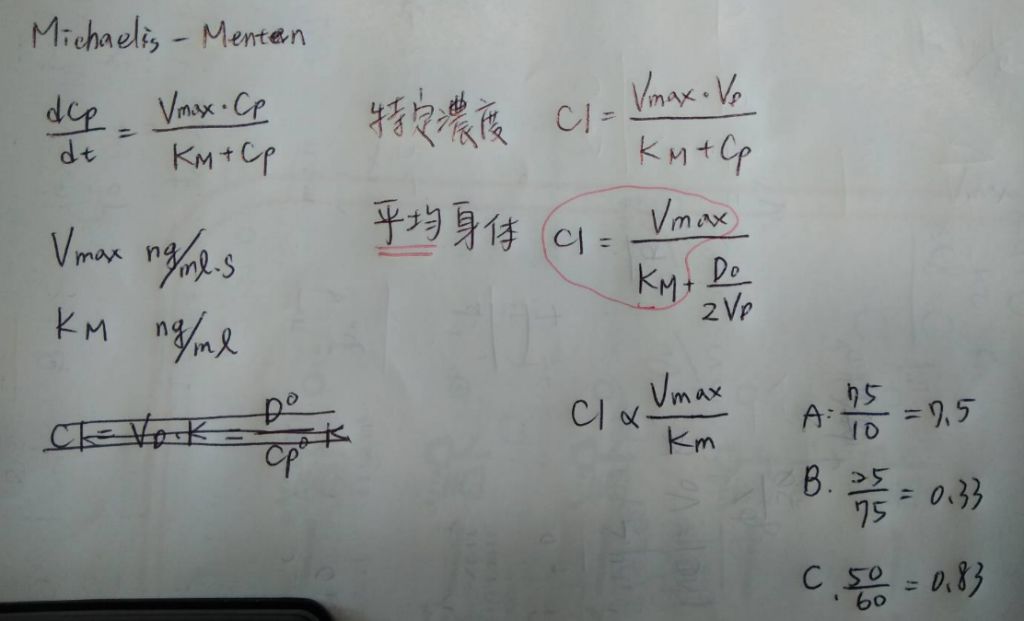 Michaelis - Menten
dCp/dt = Vmax · Cp / KM + Cp
特定濃度 Cl = Vmax · Vp / KM + Cp
平均身体 Cl = Vmax / KM + Do/2Vp
Vmax ng/ml.s
KM ng/ml
Cl = VD · K = D° / Cp° K
Cl ∝ Vmax / Km
A: 75/10 = 7.5
B. 25/75 = 0.33
C. 50/60 = 0.83